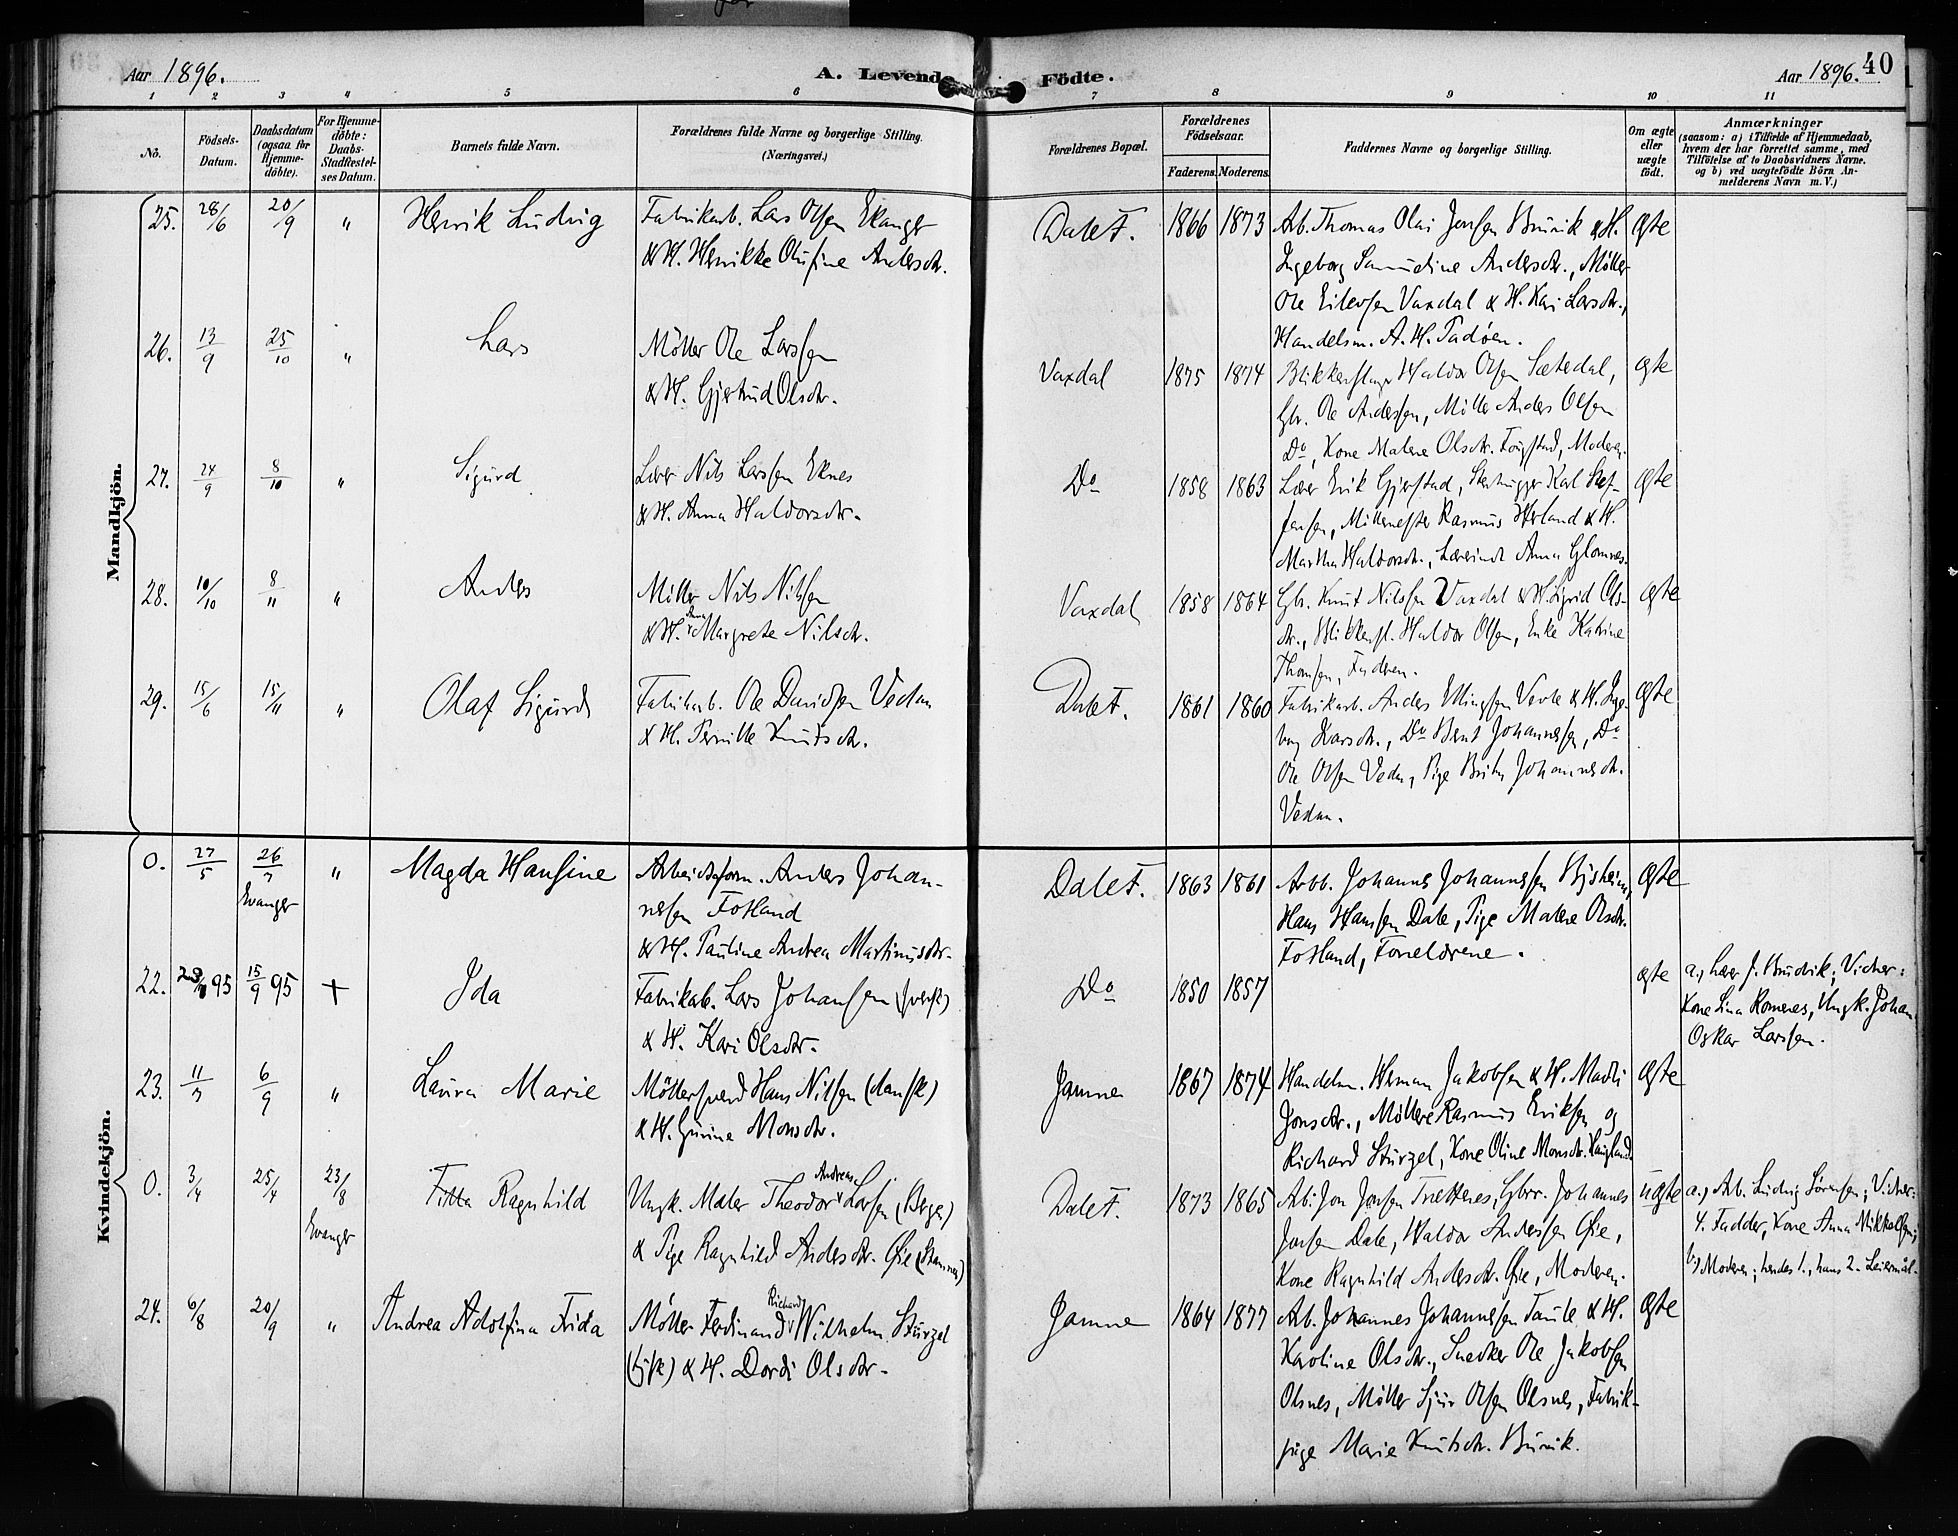 Aar 1896.
A. Levende Födte.
Aar 1896. 40
1 2 3 4 5 6 7 8 9 10 11
No.
Födsels-
Datum.
Daabsdatum
(ogsaa for
Hjemme-
döbte).
For Hjemme-
döbte:
Daabs-
Stadfæstel-
ses Datum.
Barnets fulde Navn.
Forældrenes fulde Navne og borgerlige Stilling.
(Næringsvei.)
Forældrenes Bopæl.
Forældrenes
Födselsaar.
Faderens. Moderens.
Faddernes Navne og borgerlige Stilling.
Om ægte
eller
uægte
födt.
Anmærkninger
(saasom: a) i Tilfælde af Hjemmedaab,
hvem der har forrettet samme, med
Tilföielse af to Daabsvidners Navne.
og b) ved uægtefödte Börn An-
melderens Navn m. V.)
Mandkjön.
25. 28/6 20/9 " Henrik Ludvig
Fabrikarb. Lars Olsen Ekanger
& H. Henrikke Olufine Andersdtr.
Dale F. 1866 1873
Arb. Thomas Olai Jonsen Bruvik & H.
Ingeborg Samueline Andersdtr., Møller
Ole Eilevsen Vaxdal & H. Kari Larsdtr.,
Handelsm. A. H. Tadøen.
ægte
26. 13/9 25/10 " Lars
Møller Ole Larssen
& H. Gjertrud Olsdtr.
Vaxdal 1875 1874
Blikkenslager Haldor Olsen Sætedal,
Gbr. Ole Anderssen, Møller Anders Olsen
Do, Kone Malene Olsdtr. Moderen.
ægte
27. 24/9 8/10 " Sigurd
Lærer Nils Larssen Eknes
& H. Anna Haldorsdtr.
Do 1858 1863
Lærer Erik Gjerstad, Stenhugger Karl Stef-
fensen, Møllermester Rasmus Herland & H.
Martha Haldorsdtr., Lærerinde Anna Glomnes.
ægte
28. 10/10 8/11 " Anders
Møller Nils Nilssen
& H. Anna Margrete Nilsdtr.
Vaxdal 1858 1864
Gbr. Knut Nilssen Vaxdal & H. Sigrid Ols-
dtr., Blikkensl. Haldor Olsen, Enke Katrine
Thomsen, Faderen.
ægte
29. 15/6 15/11 " Olaf Sigurd
Fabrikarb. Ole Davidsen Vedaa
& H. Pernille Knutsdtr.
Dale F. 1861 1860
Fabrikarb. Anders Ellingsen Verle & H. Inge-
borg Larsdtr., Do Bent Johannessen, Do
Ole Olsen Vedaa, Pige Brita Johannesdtr.
Vedaa.
ægte
Kvindekjön.
0. 27/5 26/7 " Magda Hansine
Evanger
Arbeidsform. Anders Johan-
nesen Fosland
& H. Pauline Andrea Martinusdtr.
Dale F. 1863 1861
Arbb. Johannes Johannessen Bysheim,
Hans Hanssen Dale, Pige Malene Olsdtr.
Fosland, Forældrene.
ægte
22. 95 15/9 95 + Ida
Fabrikab. Lars Johansen (svensk)
& H. Kari Olsdtr.
Do 1850 1857
ægte
a., Lærer J. Bruvik; Vidner:
Kone Lina Romenes, Ungk. Johan
Oskar Larssen.
23. 11/7 6/9 " Laura Marie
Møllersvend Hans Nilsen (dansk)
& H. Gurine Monsdtr.
Jamne 1867 1874
Handelm. Herman Jakobsen & H. Madli
Jonsdtr., Møllere Rasmus Eriksen og
Richard Stürzel, Kone Oline Monsdtr. Haugland
ægte
0. 3/4 25/4 23/8 Ragnhild
Evanger
Ungk. Maler Theodor Andreas Larsen (Bergen)
& Pige Ragnhild Andersdtr. Øie (Stamnes)
Dale F. 1873 1865
Arb. Jon Jonsen Trettenes, Gbrr. Johannes
Jonsen Dale, Haldor Anderssen Øie,
Kone Ragnhild Andersdtr. Øie, Moderen.
uægte
a., Arb. Ludvig Sörensen; Vidner:
4. Fadder, Kone Anna Mikkelsen;
b) Moderen; hendes 1., hans 2. Leiermål.
24. 6/8 20/9 " Andrea Adolfina Frida
Møller Ferdinand Richard Wilhelm Stürzel
(tysk) & H. Dordi Olsdtr.
Jamne 1864 1877
Arb. Johannes Johannessen Taule & H.
Karoline Olsdtr., Snedker Ole Jakobsen
Olsnes, Møller Sjur Olsen Olsnes, Fabrik-
pige Marie Knutsdtr. Bruvik.
ægte